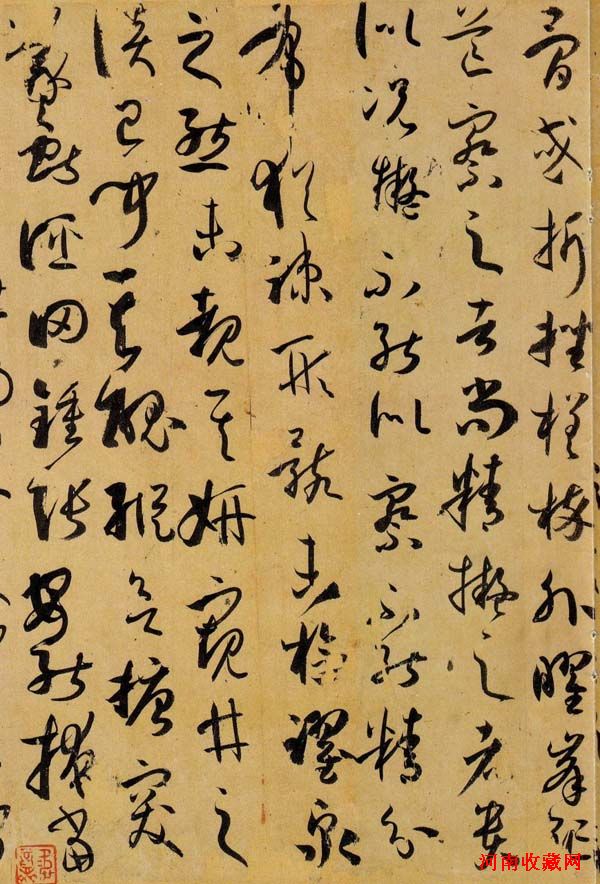 骨或折挫槎枿外曜鋒
芒察之者尚精擬之者貴
似況擬不能似察不能精分
布猶疎形骸未檢躍泉
之態未覩其妍窺井之
談已聞其醜縱欲搪突
羲獻誣罔鍾張安能掩當
河南收藏网